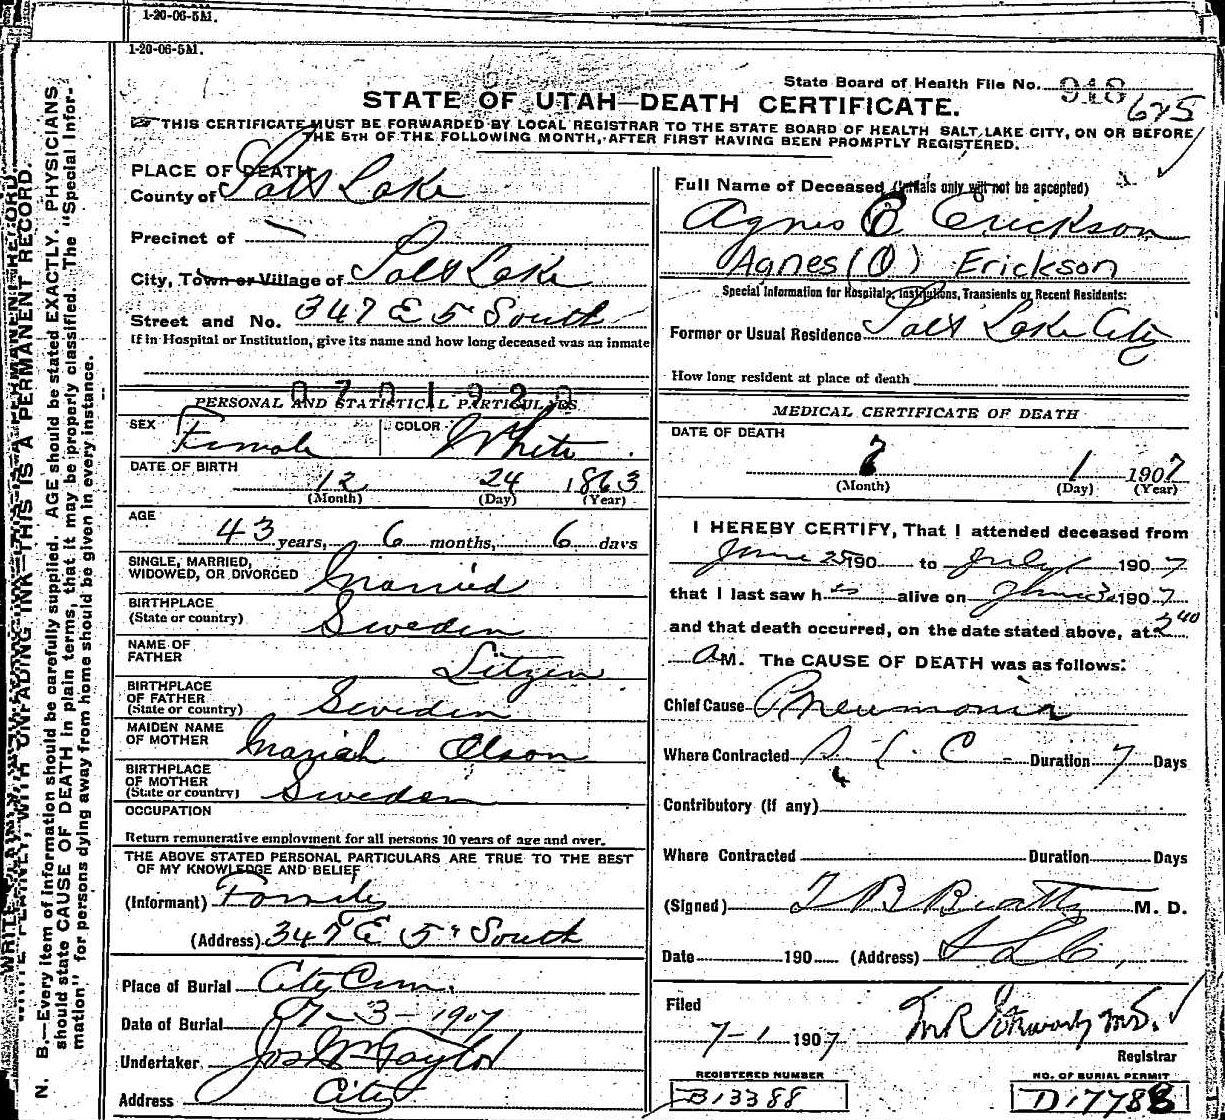 1-20-06-5M.
1-20-06-5M.
State Board of Health File No. 918
625
STATE OF UTAH—DEATH CERTIFICATE.
THIS CERTIFICATE MUST BE FORWARDED BY LOCAL REGISTRAR TO THE STATE BOARD OF HEALTH SALT LAKE CITY, ON OR BEFORE
THE 5TH OF THE FOLLOWING MONTH, AFTER FIRST HAVING BEEN PROMPTLY REGISTERED.
WRITE PLAINLY, WITH UNFADING INK—THIS IS A PERMANENT RECORD.
N. B.—Every item of information should be carefully supplied. AGE should be stated EXACTLY. PHYSICIANS
should state CAUSE OF DEATH in plain terms, that it may be properly classified. The "Special Infor-
mation" for persons dying away from home should be given in every instance.
PLACE OF DEATH
County of Salt Lake
Precinct of
City, Town or Village of Salt Lake
Street and No. 347 E 5" South
If in Hospital or Institution, give its name and how long deceased was an inmate
0701920
PERSONAL AND STATISTICAL PARTICULARS
SEX Female COLOR White
DATE OF BIRTH 12 24 1863
(Month) (Day) (Year)
AGE 43 years, 6 months, 6 days
SINGLE, MARRIED,
WIDOWED, OR DIVORCED Married
BIRTHPLACE
(State or country) Sweden
NAME OF
FATHER Litzen
BIRTHPLACE
OF FATHER
(State or country) Sweden
MAIDEN NAME
OF MOTHER Mariah Olson
BIRTHPLACE
OF MOTHER
(State or country) Sweden
OCCUPATION
Return remunerative employment for all persons 10 years of age and over.
THE ABOVE STATED PERSONAL PARTICULARS ARE TRUE TO THE BEST
OF MY KNOWLEDGE AND BELIEF
(Informant) Family
(Address) 347 E 5" South
Place of Burial City Cem.
Date of Burial 7-3-1907
Undertaker Jos Wm Taylor
Address City
Full Name of Deceased (Initials only will not be accepted)
Agnes O Erickson
Agnes (O) Erickson
Special Information for Hospitals, Institutions, Transients or Recent Residents:
Former or Usual Residence Salt Lake City
How long resident at place of death
MEDICAL CERTIFICATE OF DEATH
DATE OF DEATH
7 1 1907
(Month) (Day) (Year)
I HEREBY CERTIFY, That I attended deceased from
June 25 190 to July 1 1907
that I last saw h alive on June 30 1907
and that death occurred, on the date stated above, at 2 40
A M. The CAUSE OF DEATH was as follows:
Chief Cause Pneumonia
Where Contracted S. L. C Duration 7 Days
Contributory (If any)
Where Contracted Duration Days
(Signed) T B Beatty M. D.
Date 190 (Address) S L C,
Filed
7-1 1907 M.D.
Registrar
REGISTERED NUMBER
B13388
NO. OF BURIAL PERMIT
D17788